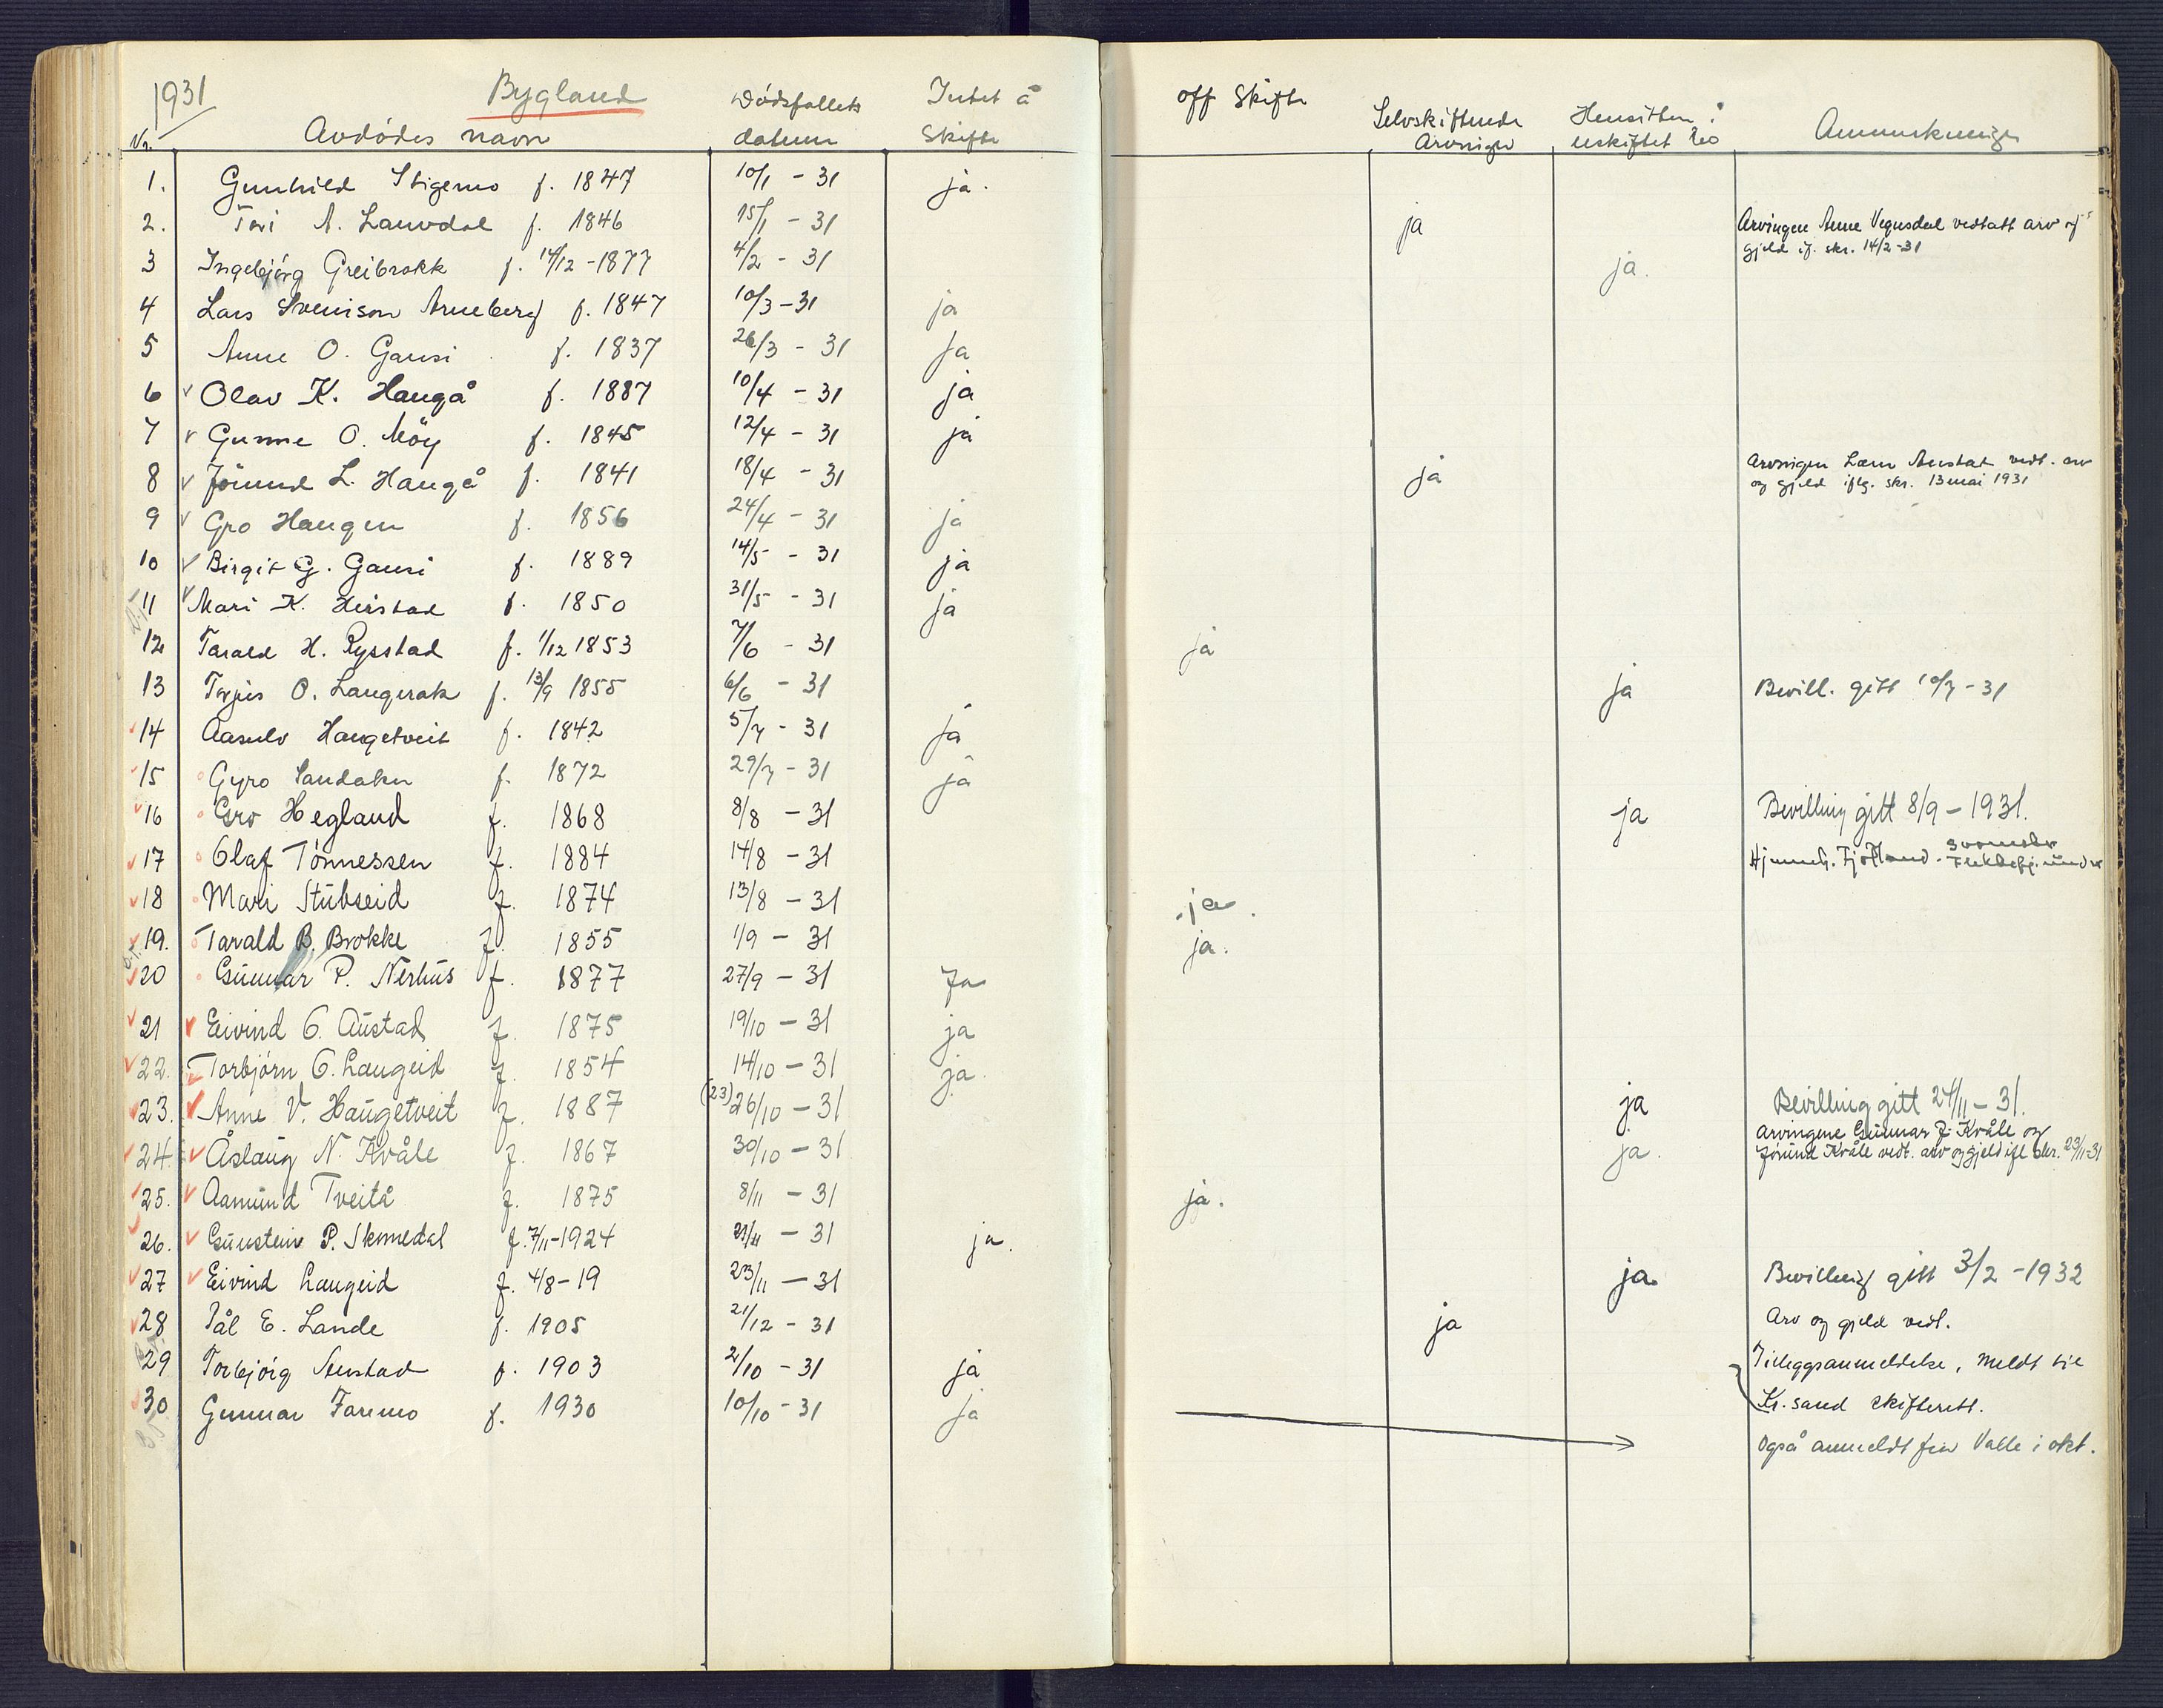 1931 Bygland
Nr. Avdødes navn Dødsfallets datum Intet å skifte off skifte Selvskiftende Arvinger Hensitten i uskiftet bo Anmerkninger
1. Gunhild Stigemo f. 1847 10/1 - 31 ja.
2. Tori A. Lauvdal f. 1846 15/1 - 31 ja Arvingen Anne Vegusdal vedtatt arv og
gjeld if. skr. 14/2-31
3 Ingebjørg Greibrokk f. 14/12-1877 4/2 - 31 ja.
4 Lars Svenison Arneberg f. 1847 10/3-31 ja
5 Anne O. Gausi f. 1837 26/3 - 31 ja
6 Olav K. Haugå f. 1887 10/4 - 31 ja
7 Gunne O. Møy f. 1845 12/4 - 31 ja
8 Jorund L. Haugå f. 1841 18/4 - 31 ja Arvingen Austad vedt. arv
og gjeld iflg. skr. 13 mai 1931
9 Gro Haugen f. 1856 24/4 - 31 ja
10 Birgit G. Gausi f. 1889 14/5 - 31 ja
11 Mari K. Heistad f. 1850 31/5 - 31 ja
12 Tarald H. Rysstad f. 1/12 1853 7/6 - 31 ja
13 Torjus O. Langerak f. 13/9 1855 6/6 - 31 ja Bevill. gitt 10/7-31
14 Aasulv Haugetveit f. 1842 5/7 - 31 ja
15 Gyro Sandaker f. 1872 29/7 - 31 ja
16 Gro Hegland f. 1868 8/8 - 31 ja Bevilling gitt 8/9 - 1931.
17 Olaf Tønnessen f. 1884 14/8 - 31 Hjemmeh.
18 Mari Stubseid f. 1874 13/8 - 31 ja.
19. Tarald B. Brokke f. 1855 1/9 - 31 ja.
20 Gunnar P. Nerhus f. 1877 27/9 - 31 Ja
21 Eivind O. Austad f. 1875 19/10 - 31 ja
22. Torbjørn O. Laugeid f. 1854 14/10 - 31 ja.
23. Anne V. Haugetveit f. 1887 (23) 26/10 - 31 ja Bevilling gitt 24/11 - 31.
24. Åslaug N. Kvåle f. 1867 30/10 - 31 ja. Arvingene Gunnar J. Kvåle og
Jorund Kvåle vedt. arv og gjeld ifl skr. 23/11-31
25. Aamund Tveitå f. 1875 8/11 - 31 ja.
26. Gunstein P. Skomedal f. 7/11-1924 - 31 ja.
27 Eivind Laugeid f. 4/8-19 23/11 - 31 ja. Bevilling gitt 3/2 - 1932
28 Pål E. Lande f. 1905 21/12 - 31 ja Arv og gjeld vedt.
29 Torbjørg Austad f. 1903 2/10 - 31 ja Tilleggsanmeldelse, meldt til
30 Gunnar Faremo f. 1930 10/10 - 31 ja Kr.sand skifterett.
også anmeldt fra Valle i okt.